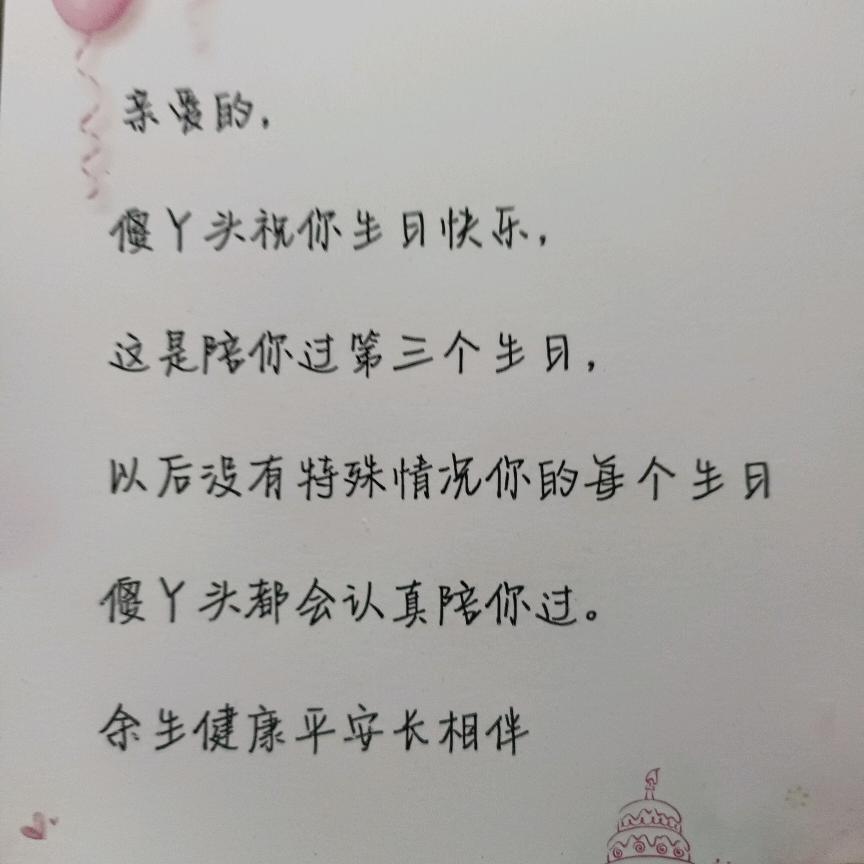 亲爱的，
傻丫头祝你生日快乐，
这是陪你过第三个生日，
以后没有特殊情况你的每个生日
傻丫头都会认真陪你过。
余生健康平安长相伴